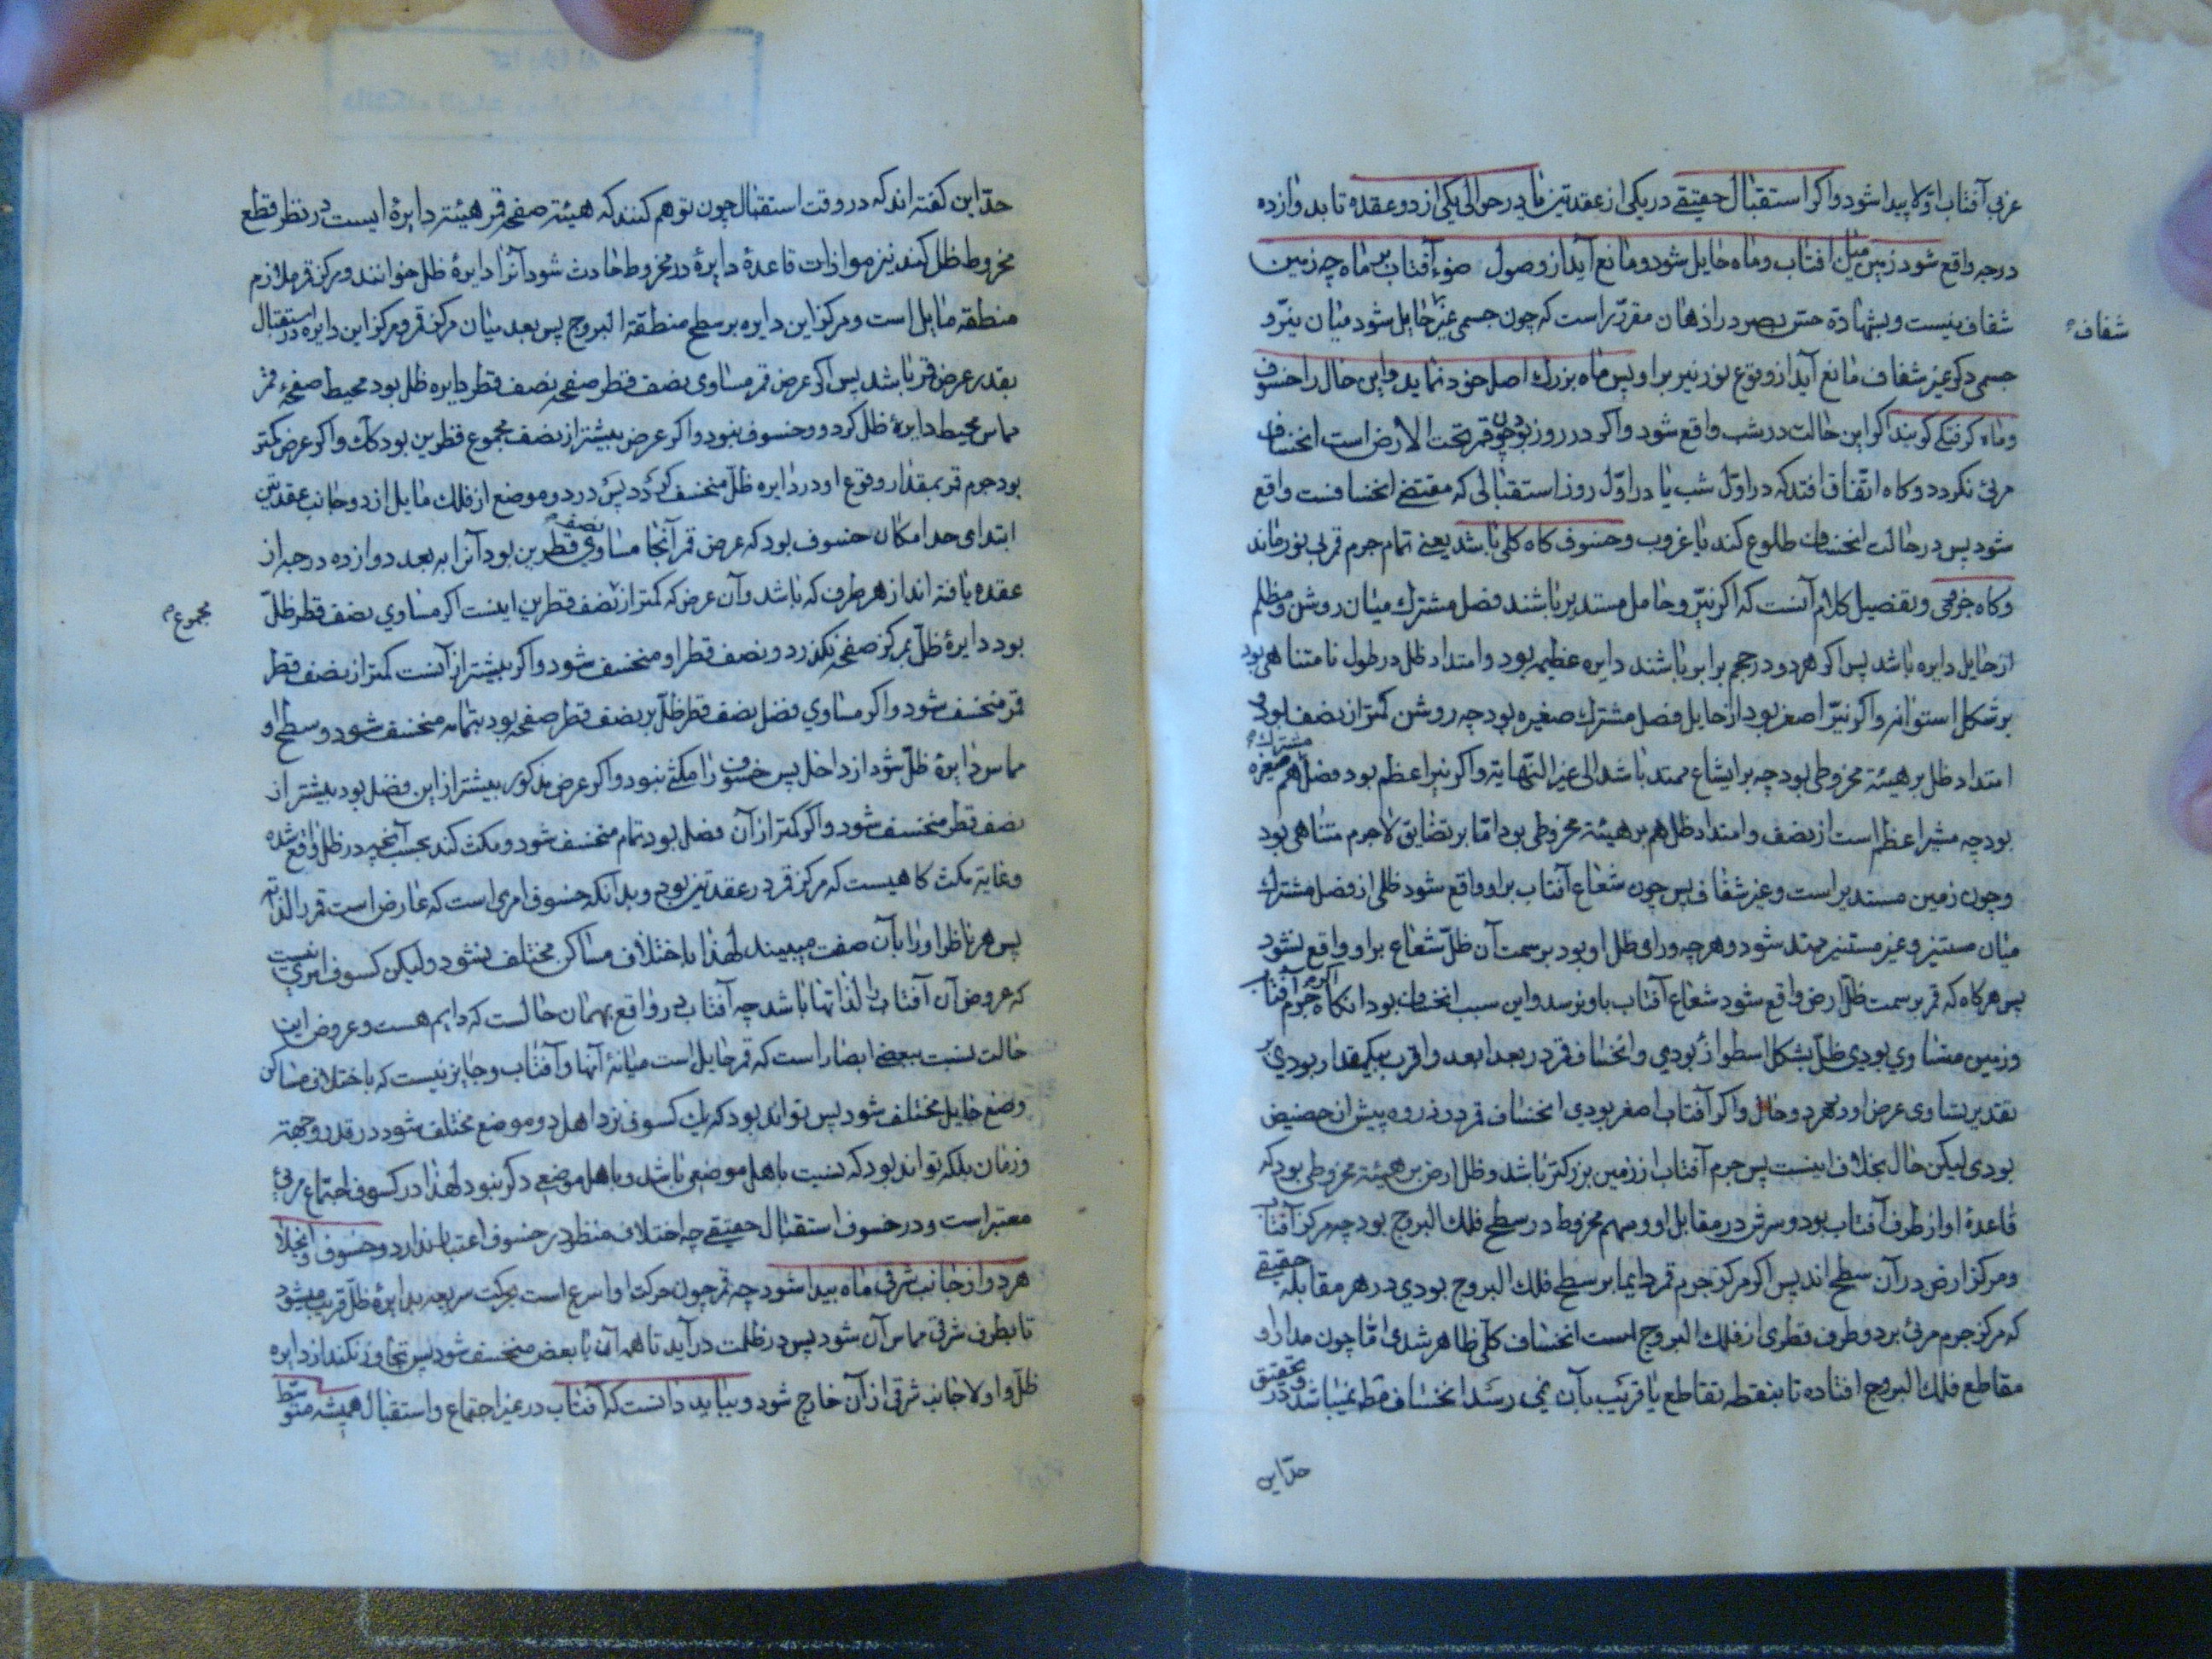 غربی آفتاب اوّلا پیدا شود و اکر استقبال حقیقے در یکی از عقدتین یا در حوالی یکی از دو عقده تا بد وازده
درجه واقع شود زمین میان افتاب و ماه حایل شود و مانع آید از وصول ضوء آفتاب بر ماه چه زمین
شفاف نیست و بشهادة حس بصر در اذهان مقرّر است که چون جسمی غیر حایل شود میان نیّر و
شفاف
جسمی دکر غیر شفاف مانع آید از وقوع نور نیر بر او پس ماه بزرك اصل خود نماید و این حال را خسوف
و ماه کرفتکے کویند اکر این حالت در شب واقع شود و اکر در روز بود چون قمر تحت الارض است انخساف
مرئ نکردد و کاه اتّفاق افتد که در اوّل شب یا در اوّل روز استقبالی که مقتضے انخسافست واقع
شود پس در حالت انخساف طلوع کند یا غروب و خسوف کاه کلی باشد یعنے تمام جرم قمر بی نور ماند
و کاه جزوی و تفصیل کلام آنست که اکر نیّر و حامل مستدیر باشند فصل مشترك میان روشن و مظلم
از حایل دایره باشد پس اکر هر دو در حجم برابر باشند دایره عظیمه بود و امتداد ظل در طول نامتناهی بود
بر شکل استوانه و اکر نیّر اصغر بود از حایل فصل مشترك صغیره بود چه روشن کمتر از نصف بود و
امتداد ظل بر هیئة مخروطی بود چه بر ایشاع ممتد باشد الی غیر النّهایة و اکر نیر اعظم بود فصل مشترك هم صغیره
بود چه مستنیر اعظم است از نصف و امتداد ظل هم بر هیئة مخروطی بود امّا بر تضایق لاجرم متناهی بود
و چون زمین مستدیر است و غیر شفاف پس چون شعاع آفتاب بر او واقع شود ظلی از فصل مشترك
میان مستنیر و غیر مستنیر ممتد شود و هر چه ورای ظل او بود بر سمت آن ظلّ شعاع بر او واقع نشود
پس هر کاه که قمر بر سمت ظلّ ارض واقع شود شعاع آفتاب باو نرسد و این سبب انخساف بود انکاه اکر جرم آفتاب
و زمین متساوي بودي ظلّ بشکل اسطوانه بودي و انخساف قمر در بعد ابعد و اقرب بیکمقدار بودي بر
تقدیر تساوی عرض او در هر دو حال و اکر آفتاب اصغر بودي انخساف قمر در ذروه پیش از حضیض
بودی لیکن حال بخلاف اینست پس جرم آفتاب از زمین بزرکتر باشد و ظل ارض بر هیئة مخروطی بود که
قاعدۀ او از طرف آفتاب بود و سرش در مقابل او و سهم مخروط در سطح فلك البروج بود چه مرکز آفتاب
و مرکز ارض در آن سطح اند پس اکر مرکز جرم قمر دایما بر سطح فلك البروج بودي در هر مقابله حقیقے
که مرکز جرم مرئ بر دو طرف قطری از فلك البروج است انخساف کلّی ظاهر شدی امّا چون مدار او
مقاطع فلك البروج افتاده تا بنقطه تقاطع یا قریب بآن نمی رسد انخساف قط نمیباشد و در تحقیق
حدّ این
حدّ این کفته اند که در وقت استقبال چون توهم کنند که هیئة صفحه قمر هیئة دایرۀ ایست در نظر قطع
مخروط ظل کند نیز موازات قاعدۀ دایرۀ در مخروط حادث شود آنرا دایرۀ ظل خوانند و مرکز قمر ملازم
منطقه مایل است و مرکز این دایره بر سطح منطقة البروج پس بعد میان مرکز قمر و مرکز این دایره در استقبال
بقدر عرض قمر باشد پس اکر عرض قمر مساوی نصف قطر صفحه و نصف قطر دایره ظل بود محیط صفحه قمر
مماس محیط دایرۀ ظل کردد و خسوف نبود و اکر عرض بیشتر از نصف مجموع قطرین بود کذلك و اکر عرض کمتر
بود جرم قمر بمقدار وقوع او در دایره ظلّ منخسف کردد پس در دو موضع از فلك مایل از دو جانب عقدتین
ابتدای حد امکان خسوف بود که عرض قمر آنجا مساوي نصف قطرین بود آنرا به بعد دوازده درجه از
عقده یافته اند از هر طرف که باشد و آن عرض که کمتر از نصف قطرین اینست اکر مساوي نصف قطر ظلّ
مجموع
بود دایرۀ ظلّ بمرکز صفحه بکذرد و نصف قطر او منخسف شود و اکر بیشتر از آنست کمتر از نصف قطر
قمر منخسف شود و اکر مساوي فضل نصف قطر ظلّ بر نصف قطر صفحه بود بتمامه منخسف شود و سطح او
مماس دایرۀ ظلّ شود از داخل پس خسوف را مکثے نبود و اکر عرض مذکور بیشتر از این فضل بود بیشتر از
نصف قطر منخسف شود و اکر کمتر از آن فضل بود تمام منخسف شود و مکث کند بحسب آنچه در ظل واقع شده
و غایة مکث کاهیست که مرکز قمر در عقدتین بود و بدانکه خسوف امری است که عارض است قمر را لذاته
پس هر ناظر او را بآن صفت میبیند لهذا باختلاف مساکن مختلف نشود و لیکن کسوف امری نیست
که عروض آن آفتاب را لذاتها باشد چه آفتاب در واقع بهمان حالست که دایم هست و عروض این
حالت نسبت ببعضے ابصار است که قمر حایل است میانۀ آنها و آفتاب و جایز نیست که باختلاف مساکن
وضع حایل مختلف شود پس تواند بود که یك کسوف نزد اهل دو موضع مختلف شود در قدر و جهة
و زمان بلکه تواند بود که نسبت باهل موضعی باشد و باهل موضعی دکر نبود لهذا در کسوف اجتماع مرئ
معتبر است و در خسوف استقبال حقیقے چه اختلاف منظر در خسوف اعتبار ندارد و خسوف و انجلا
هر دو از جانب شرقی ماه پیدا شود چه قمر چون حرکت او اسرع است بحرکت سریعه بدایرۀ ظلّ قریب میشود
تا بطرف شرقی مماس آن شود پس در ظلمت در آید تا همه آن یا بعض منخسف شود پس تجاوز کند از دایره
ظلّ و اولا جانب شرقی از آن خارج شود و بباید دانست که آفتاب در غیر اجتماع و استقبال همیشه متوسّط